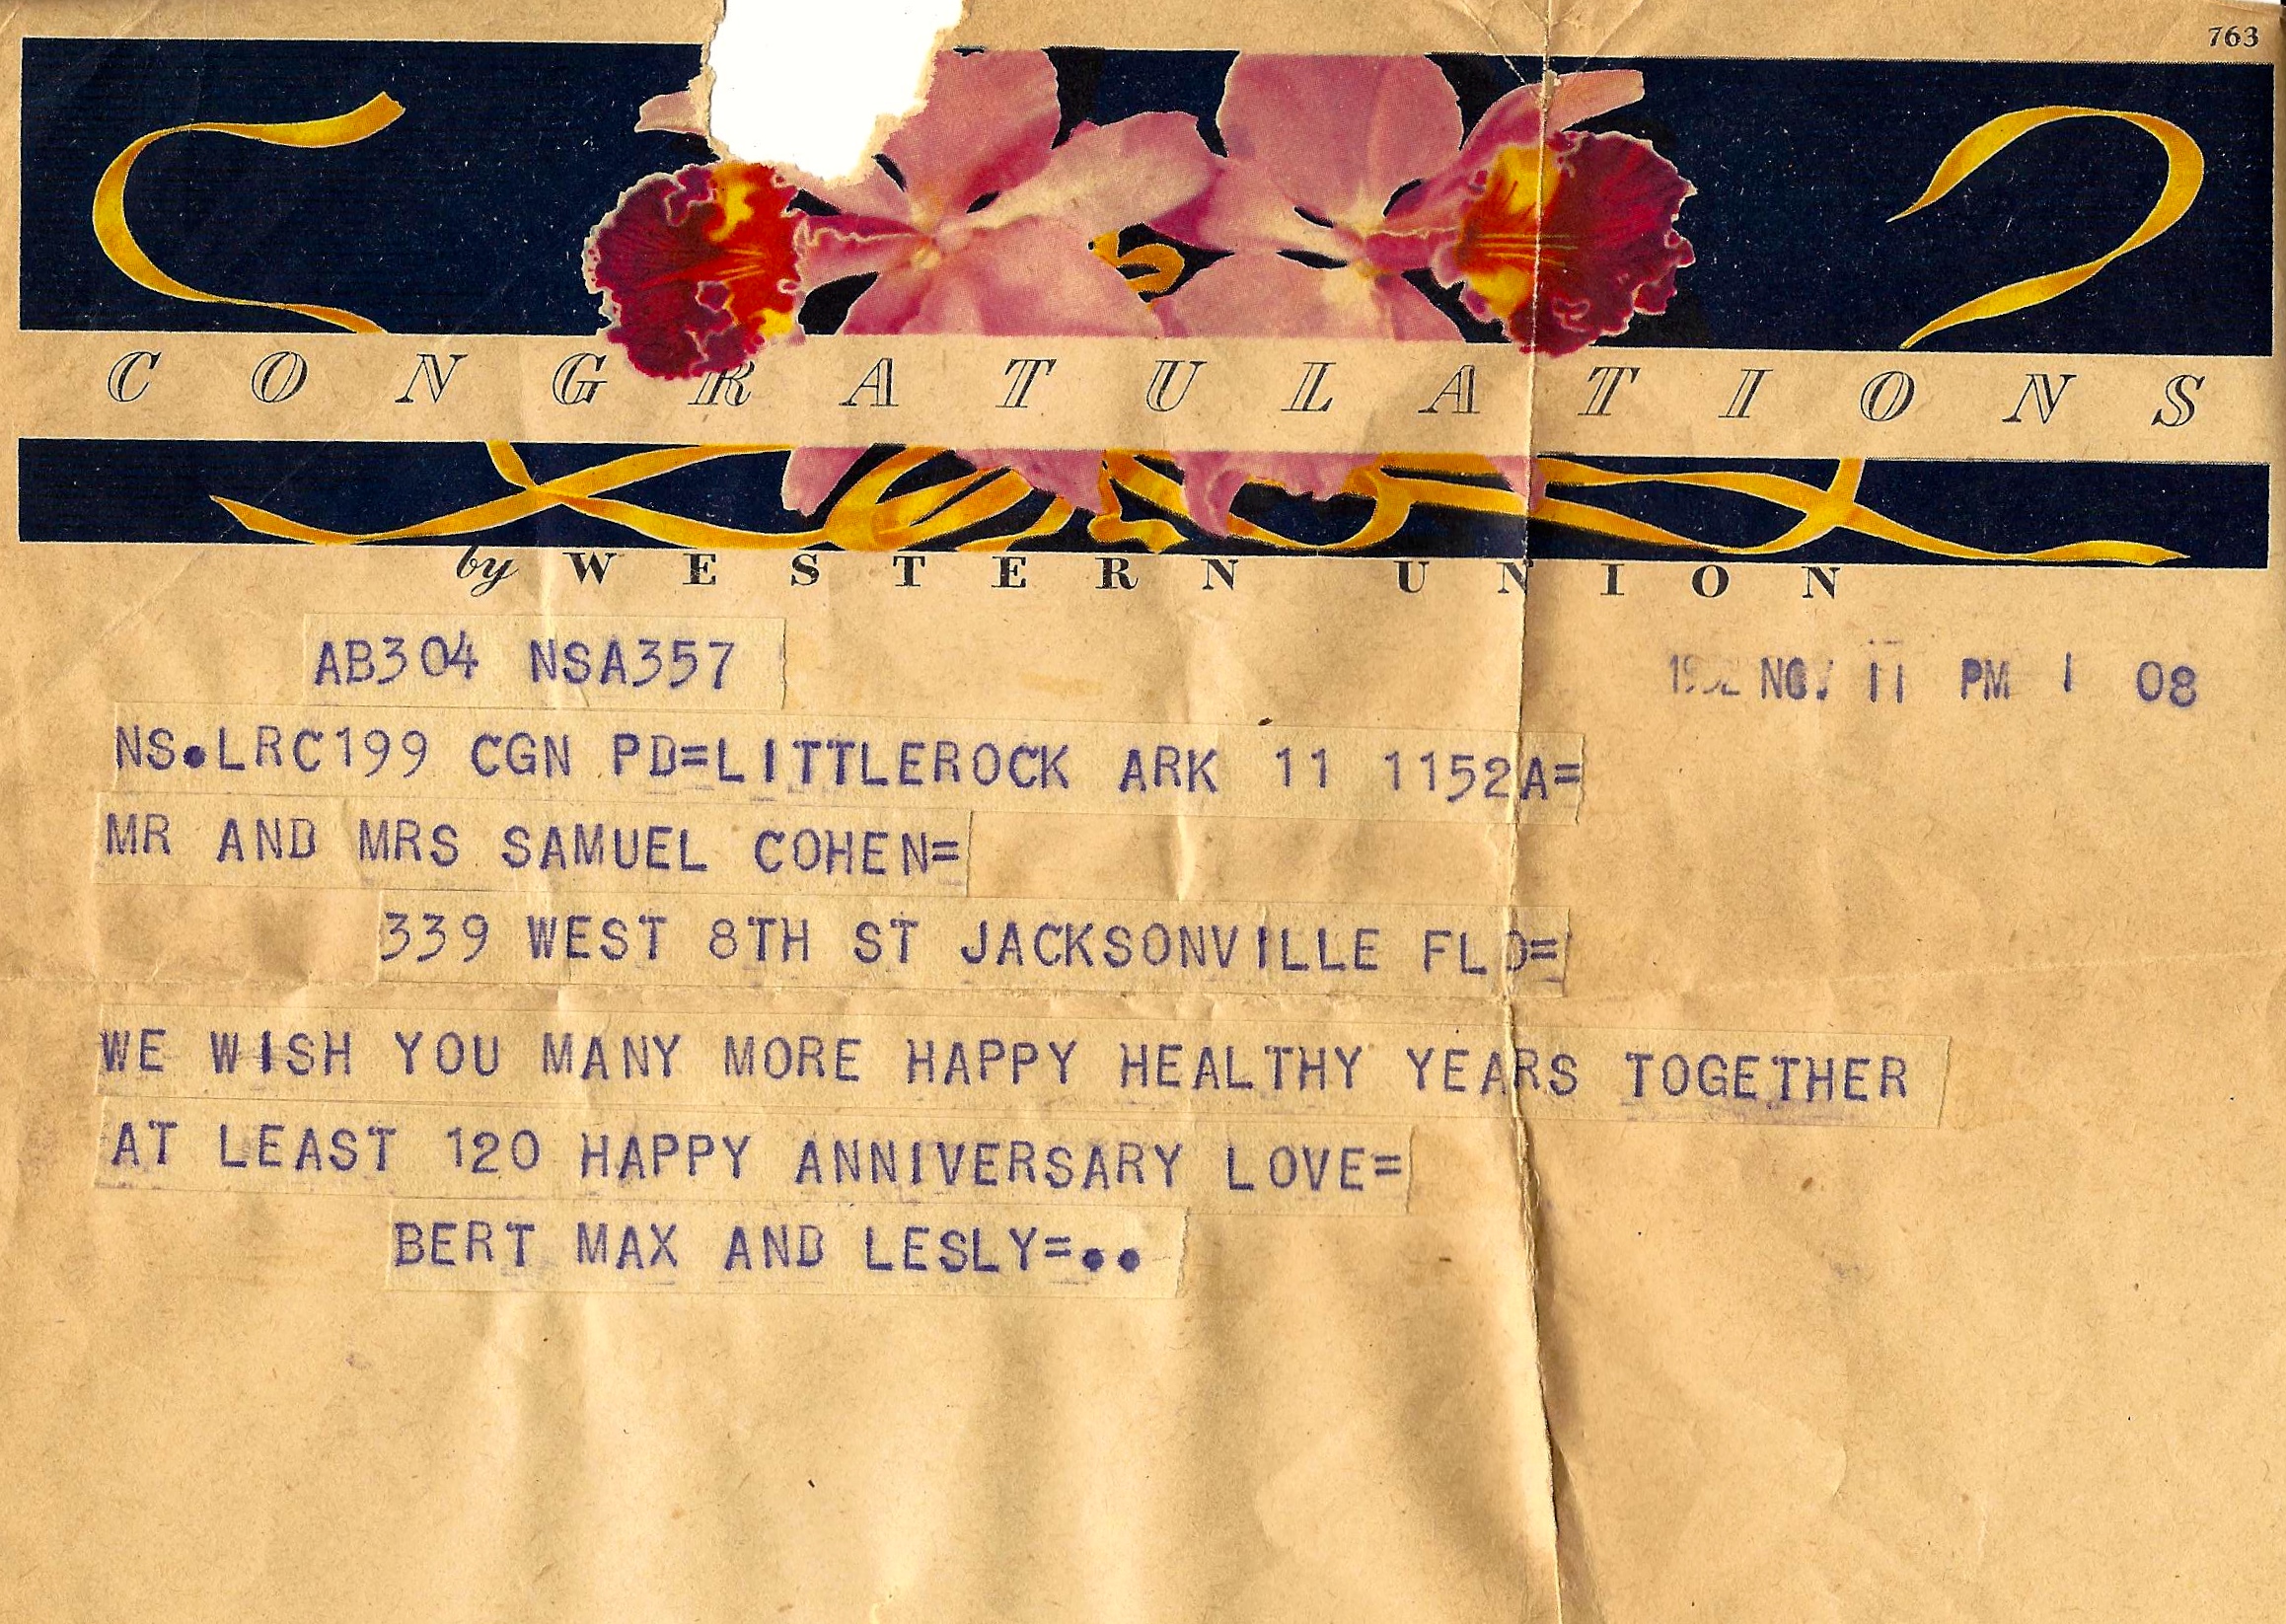 763
CONGRATULATIONS
by WESTERN UNION
AB304 NSA357
1952 NOV 11 PM 1 08
NS.LRC199 CGN PD=LITTLEROCK ARK 11 1152A=
MR AND MRS SAMUEL COHEN=
339 WEST 8TH ST JACKSONVILLE FLO=
WE WISH YOU MANY MORE HAPPY HEALTHY YEARS TOGETHER
AT LEAST 120 HAPPY ANNIVERSARY LOVE=
BERT MAX AND LESLY=..